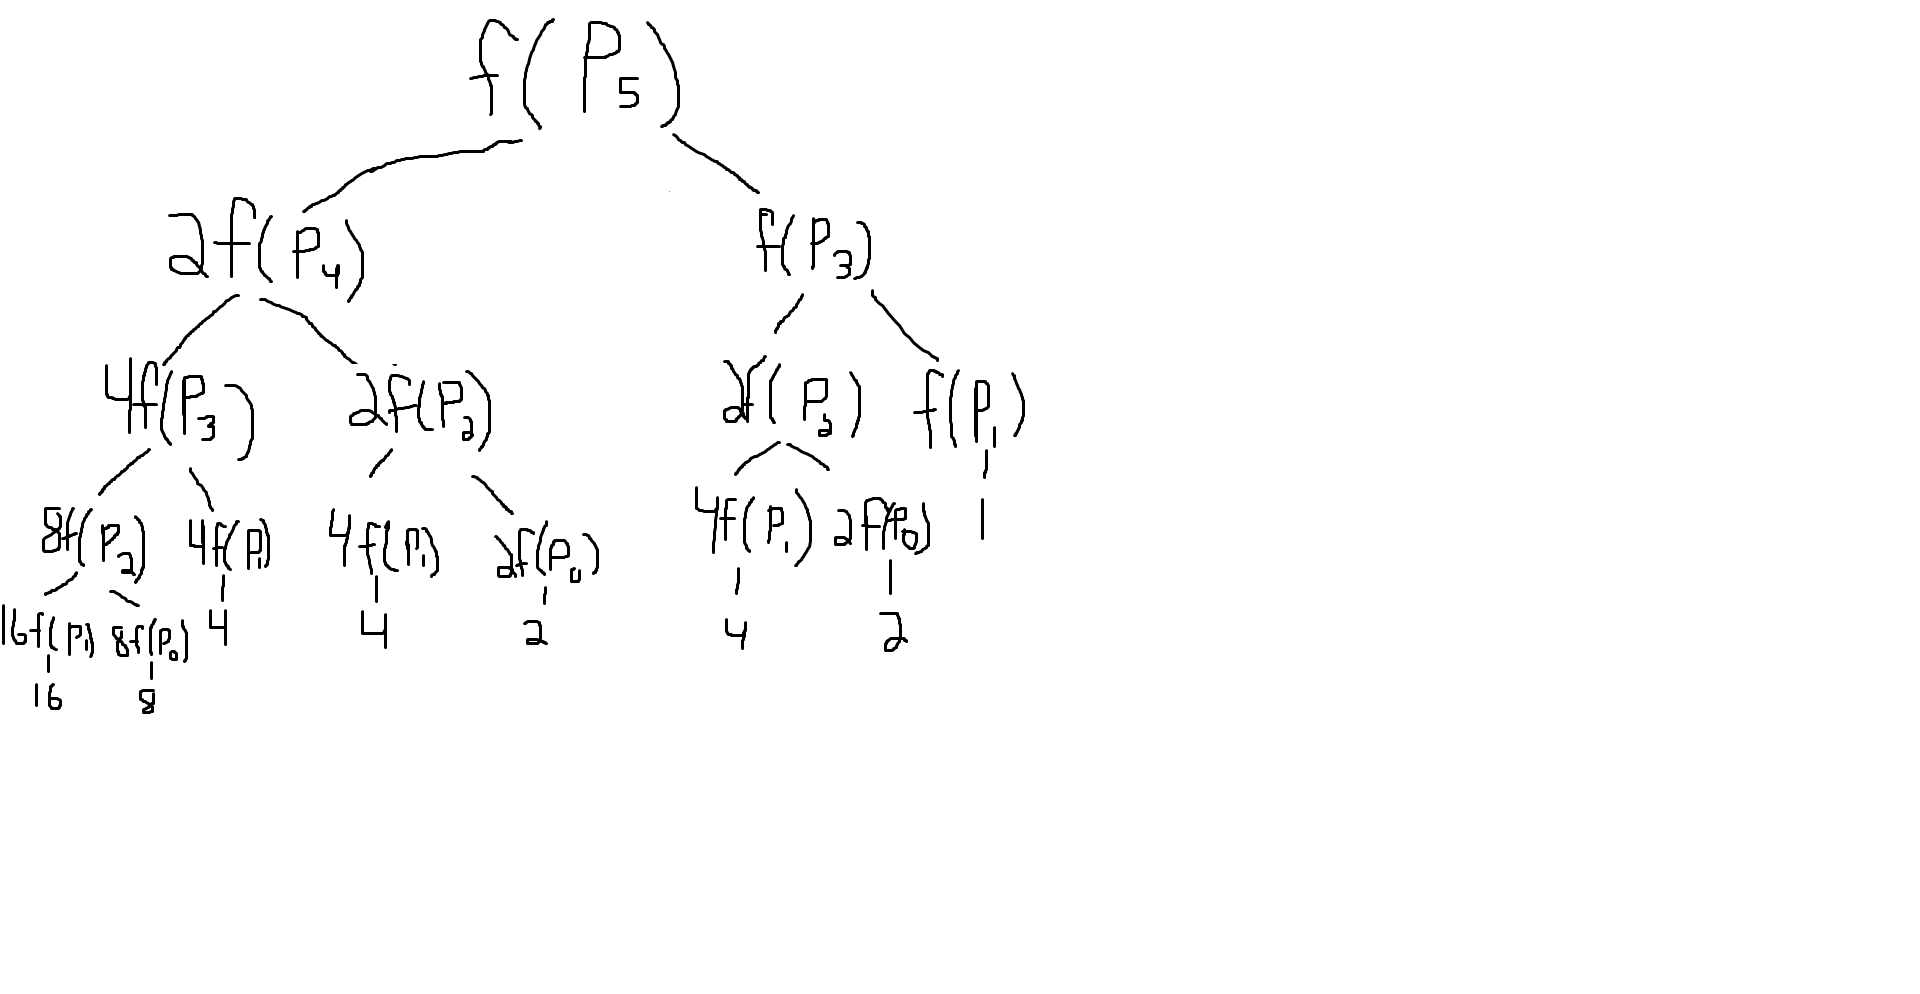 f(P₅)
2f(P₄) f(P₃)
4f(P₃) 2f(P₂) 2f(P₂) f(P₁)
8f(P₂) 4f(P₁) 4f(P₁) 2f(P₀) 4f(P₁) 2f(P₀) 1
16f(P₁) 8f(P₀) 4 4 2 4 2
16 8